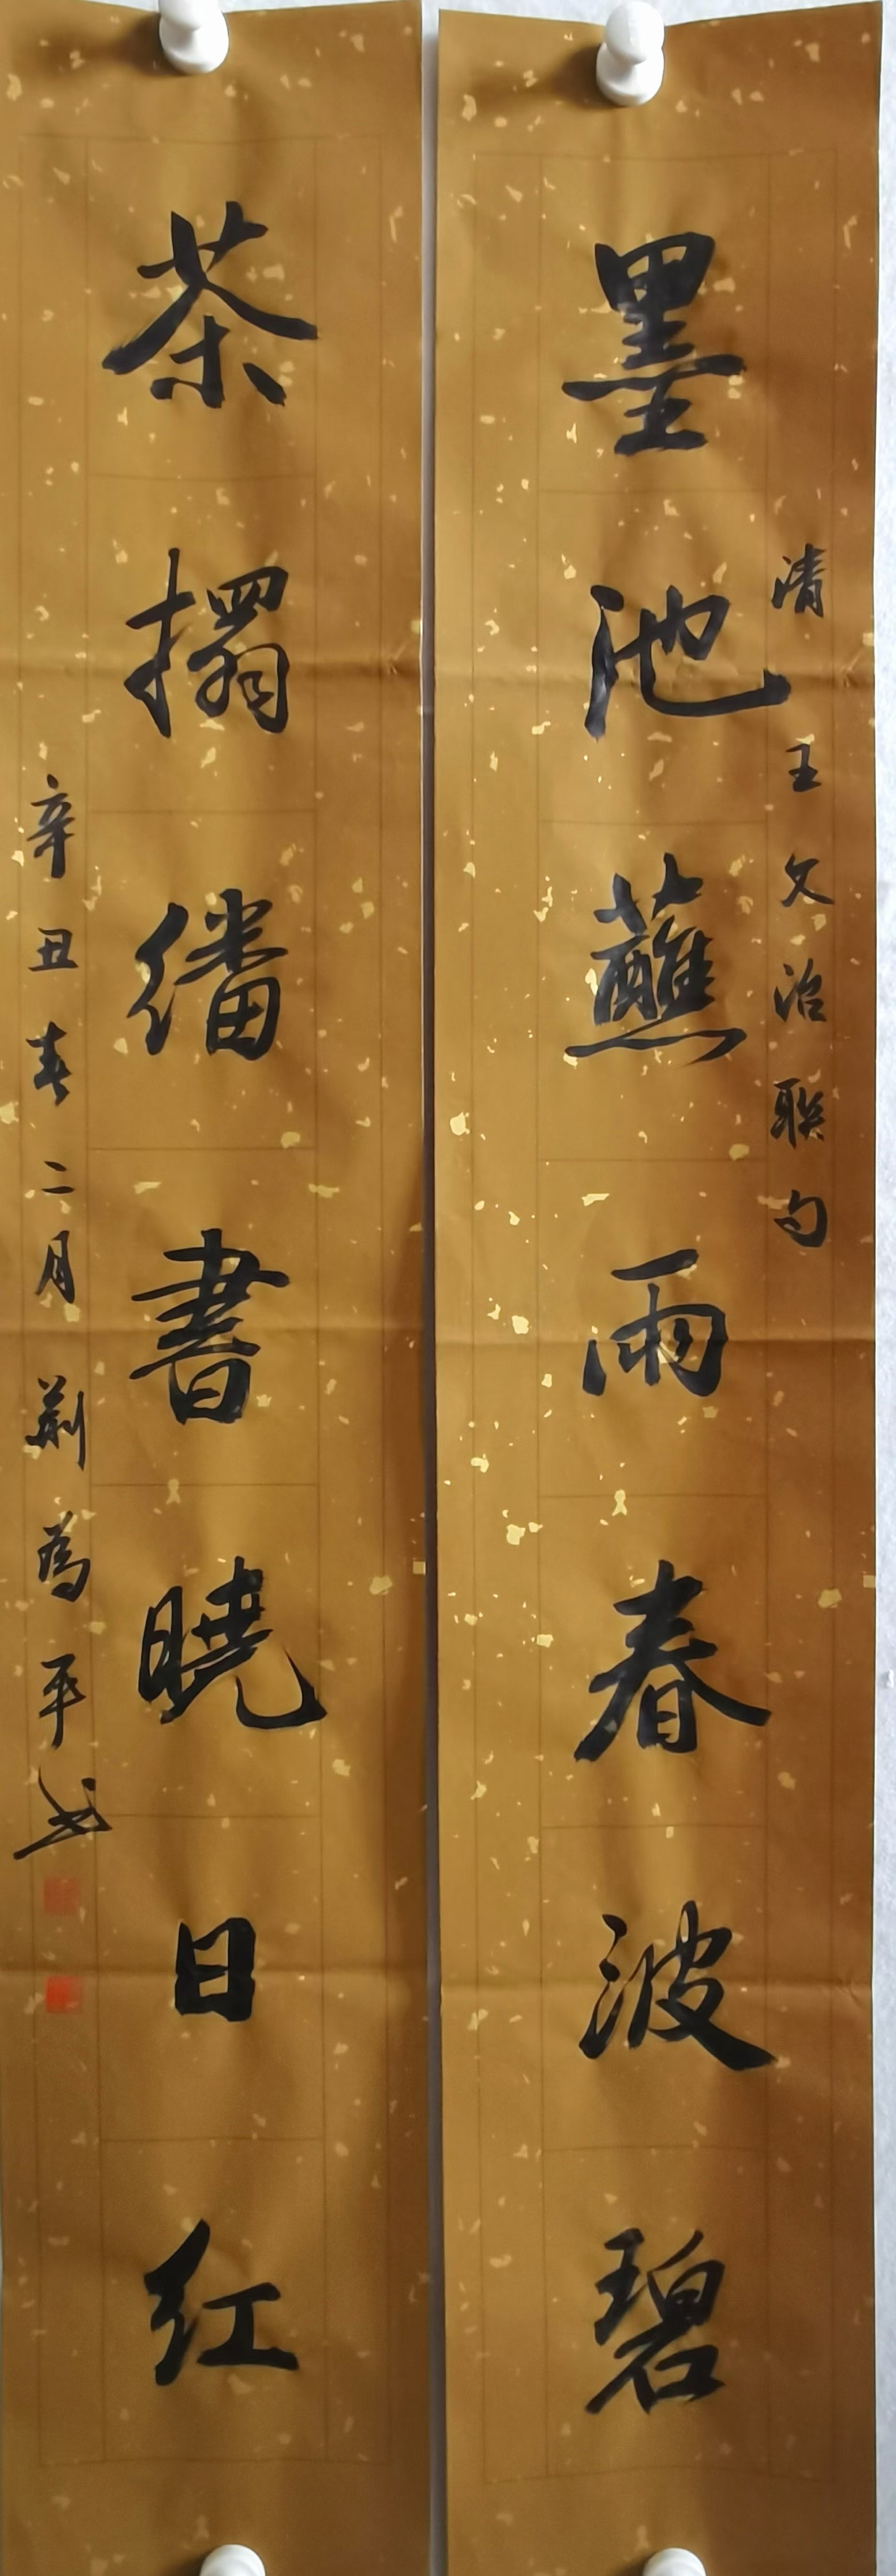 清王文治联句
墨池蘸雨春波碧
茶搨繙書曉日红
辛丑春二月荆為平书